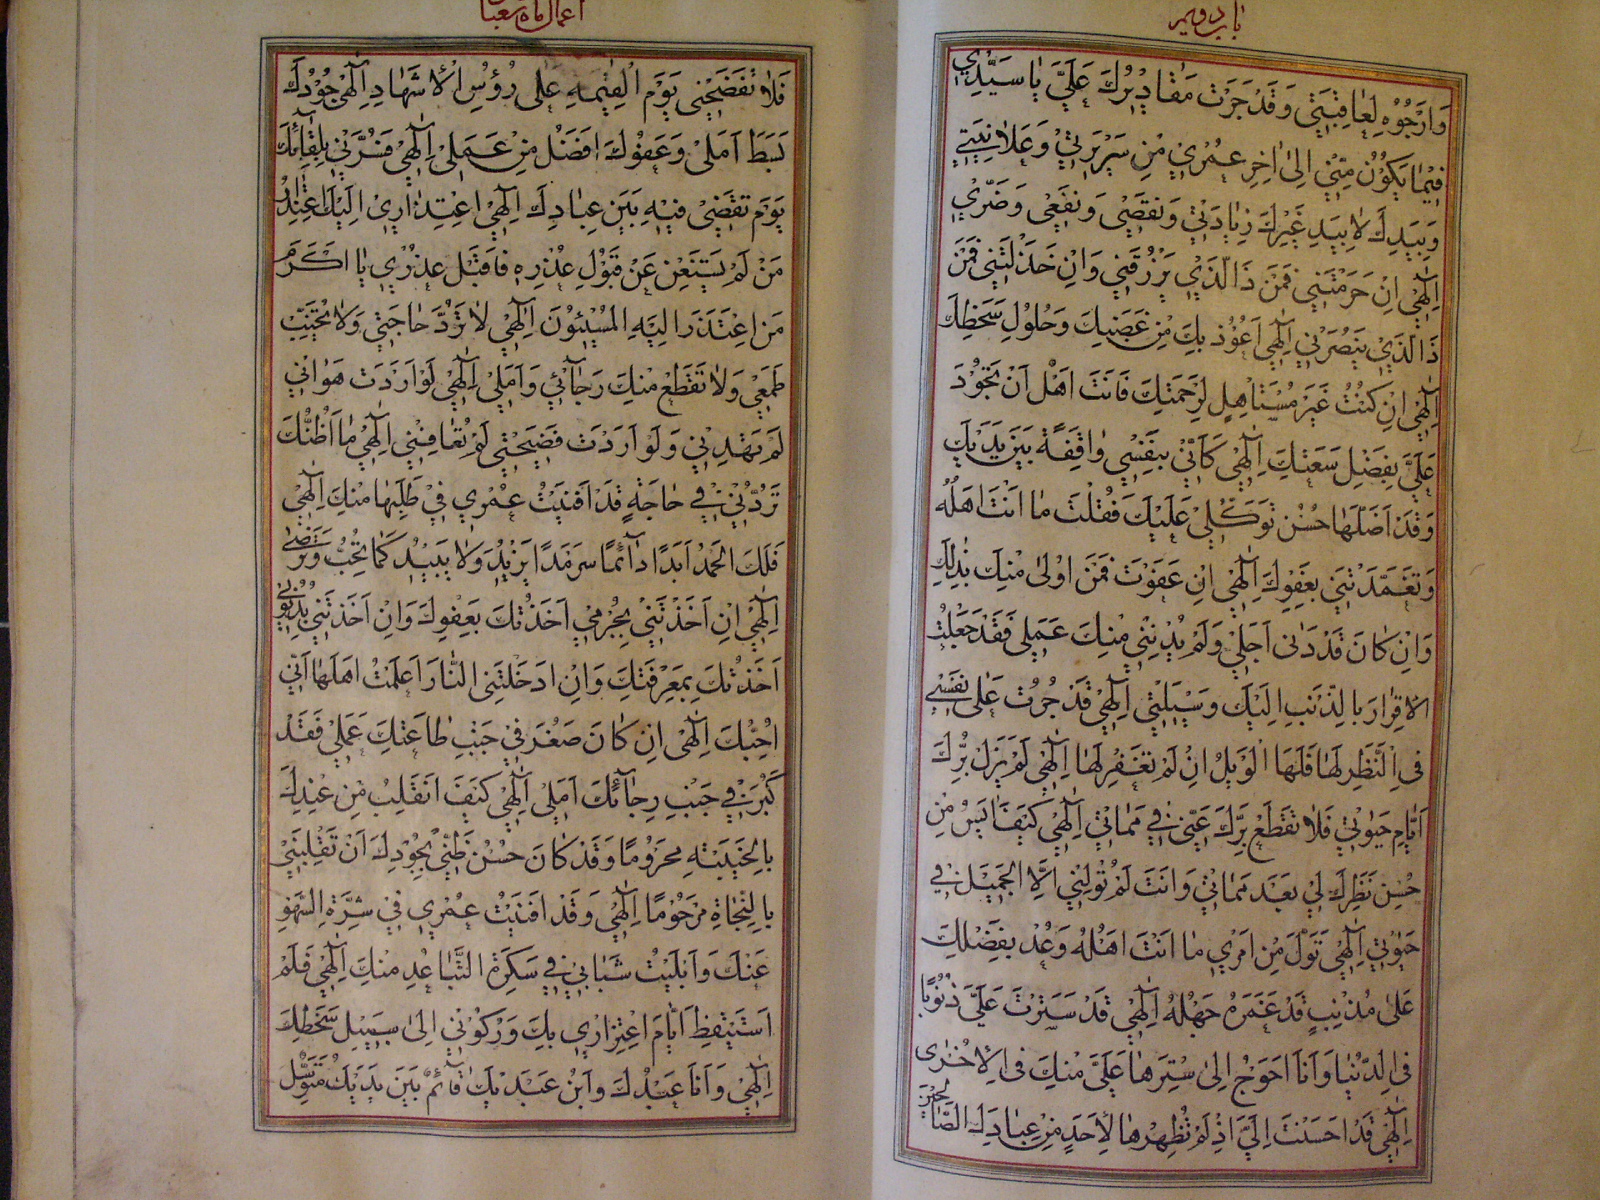 باب دویم
وَارْجُوهُ لِعَاقِبَتِي وَقَدْ جَرَتْ مَقَادِيرُكَ عَلَيَّ يَا سَيِّدِي
فِيمَا يَكُونُ مِنِّي اِلىٰ اٰخِرِ عُمُرِي مِنْ سَرِيرَتِي وَعَلَانِيَتِي
وَبِيَدِكَ لَا بِيَدِ غَيْرِكَ زِيَادَتِي وَنَقْصِي وَنَفْعِي وَضَرِّي
اِلٰهِي اِنْ حَرَمْتَنِي فَمَنْ ذَا الَّذِي يَرْزُقُنِي وَاِنْ خَذَلْتَنِي فَمَنْ
ذَا الَّذِي يَنْصُرُنِي اِلٰهِي اَعُوذُ بِكَ مِنْ غَضَبِكَ وَحُلُولِ سَخَطِكَ
اِلٰهِي اِنْ كُنْتُ غَيْرَ مُسْتَاهِلٍ لِرَحْمَتِكَ فَاَنْتَ اَهْلٌ اَنْ تَجُودَ
عَلَيَّ بِفَضْلِ سَعَتِكَ اِلٰهِي كَاَنِّي بِنَفْسِي وَاقِفَةٌ بَيْنَ يَدَيْكَ
وَقَدْ اَظَلَّهَا حُسْنُ تَوَكُّلِي عَلَيْكَ فَقُلْتَ مَا اَنْتَ اَهْلُهُ
وَتَغَمَّدْتَنِي بِعَفْوِكَ اِلٰهِي اِنْ عَفَوْتَ فَمَنْ اَوْلىٰ مِنْكَ بِذٰلِكَ
وَاِنْ كَانَ قَدْ دَنىٰ اَجَلِي وَلَمْ يُدْنِنِي مِنْكَ عَمَلِي فَقَدْ جَعَلْتُ
الْاِقْرَارَ بِالذَّنْبِ اِلَيْكَ وَسِيلَتِي اِلٰهِي قَدْ جُرْتُ عَلىٰ نَفْسِي
فِي النَّظَرِ لَهَا فَلَهَا الْوَيْلُ اِنْ لَمْ تَغْفِرْ لَهَا اِلٰهِي لَمْ يَزَلْ بِرُّكَ
اَيَّامَ حَيٰوتِي فَلَا تَقْطَعْ بِرَّكَ عَنِّي فِي مَمَاتِي اِلٰهِي كَيْفَ اٰيَسُ مِنْ
حُسْنِ نَظَرِكَ لِي بَعْدَ مَمَاتِي وَاَنْتَ لَمْ تُوَلِّنِي اِلَّا الْجَمِيلَ فِي
حَيٰوتِي اِلٰهِي تَوَلَّ مِنْ اَمْرِي مَا اَنْتَ اَهْلُهُ وَعُدْ بِفَضْلِكَ
عَلىٰ مُذْنِبٍ قَدْ غَمَرَهُ جَهْلُهُ اِلٰهِي قَدْ سَتَرْتَ عَلَيَّ ذُنُوبًا
فِي الدُّنْيَا وَاَنَا اَحْوَجُ اِلىٰ سَتْرِهَا عَلَيَّ مِنْكَ فِي الْاُخْرىٰ
اِلٰهِي قَدْ اَحْسَنْتَ اِلَيَّ اِذْ لَمْ تُظْهِرْهَا لِاَحَدٍ مِنْ عِبَادِكَ الصَّالِحِينَ
اعمال ماه شعبان
فَلَا تَفْضَحْنِي يَوْمَ الْقِيٰمَةِ عَلىٰ رُؤُسِ الْاَشْهَادِ اِلٰهِي جُودُكَ
بَسَطَ اَمَلِي وَعَفْوُكَ اَفْضَلُ مِنْ عَمَلِي اِلٰهِي فَسُرَّنِي بِلِقَائِكَ
يَوْمَ تَقْضِي فِيهِ بَيْنَ عِبَادِكَ اِلٰهِي اِعْتِذَارِي اِلَيْكَ اعْتِذَارُ
مَنْ لَمْ يَسْتَغْنِ عَنْ قَبُولِ عُذْرِهِ فَاقْبَلْ عُذْرِي يَا اَكْرَمَ
مَنِ اعْتَذَرَ اِلَيْهِ الْمُسِيئُونَ اِلٰهِي لَا تَرُدَّ حَاجَتِي وَلَا تُخَيِّبْ
طَمَعِي وَلَا تَقْطَعْ مِنْكَ رَجَائِي وَاَمَلِي اِلٰهِي لَوْ اَرَدْتَ هَوَانِي
لَمْ تَهْدِنِي وَلَوْ اَرَدْتَ فَضِيحَتِي لَمْ تُعَافِنِي اِلٰهِي مَا اَظُنُّكَ
تَرُدُّنِي فِي حَاجَةٍ قَدْ اَفْنَيْتُ عُمُرِي فِي طَلَبِهَا مِنْكَ اِلٰهِي
فَلَكَ الْحَمْدُ اَبَدًا دَائِمًا سَرْمَدًا يَزِيدُ وَلَا يَبِيدُ كَمَا تُحِبُّ وَتَرْضىٰ
اِلٰهِي اِنْ اَخَذْتَنِي بِجُرْمِي اَخَذْتُكَ بِعَفْوِكَ وَاِنْ اَخَذْتَنِي بِذُنُوبِي
اَخَذْتُكَ بِمَغْفِرَتِكَ وَاِنْ اَدْخَلْتَنِي النَّارَ اَعْلَمْتُ اَهْلَهَا اَنِّي
اُحِبُّكَ اِلٰهِي اِنْ كَانَ صَغُرَ فِي جَنْبِ طَاعَتِكَ عَمَلِي فَقَدْ
كَبُرَ فِي جَنْبِ رَجَائِكَ اَمَلِي اِلٰهِي كَيْفَ اَنْقَلِبُ مِنْ عِنْدِكَ
بِالْخَيْبَةِ مَحْرُومًا وَقَدْ كَانَ حُسْنُ ظَنِّي بِجُودِكَ اَنْ تَقْلِبَنِي
بِالنَّجَاةِ مَرْحُومًا اِلٰهِي وَقَدْ اَفْنَيْتُ عُمُرِي فِي شِرَّةِ السَّهْوِ
عَنْكَ وَاَبْلَيْتُ شَبَابِي فِي سَكْرَةِ التَّبَاعُدِ مِنْكَ اِلٰهِي فَلَمْ
اَسْتَيْقِظْ اَيَّامَ اغْتِرَارِي بِكَ وَرُكُونِي اِلىٰ سَبِيلِ سَخَطِكَ
اِلٰهِي وَاَنَا عَبْدُكَ وَابْنُ عَبْدَيْكَ قَائِمٌ بَيْنَ يَدَيْكَ مُتَوَسِّلٌ